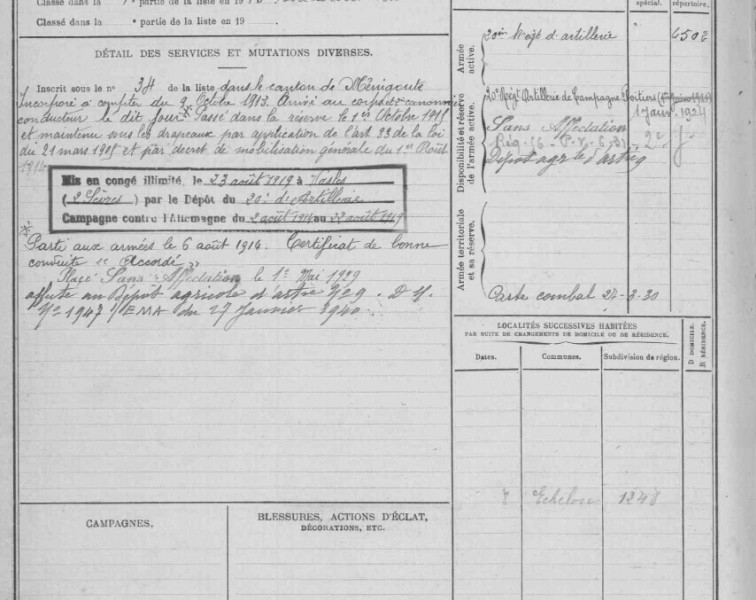 Classé dans la partie de la liste en 19
Classé dans la • partie de la liste en 19
DÉTAIL DES SERVICES ET MUTATIONS DIVERSES.
Inscrit sous le n° 34 de la liste dans le canton de Ménigoute
Incorporé à compter du 9 Octobre 1913. Arrivé au corps et canonnier
conducteur le dit jour * Passé dans la réserve le 1er Octobre 1915
et maintenu sous les drapeaux par application de l'art 33 de la loi
du 21 mars 1905 et par décret de mobilisation générale du 1er Août
1914
Mis en congé illimité, le 23 août 1919 à Vasles
(2 Sèvres) par le Dépôt du 20e d'Artillerie
Campagne contre l'Allemagne du 2 août 1914 au 22 août 1919
* Parti aux armées le 6 août 1914. Certificat de bonne
conduite "Accordé"
Placé Sans Affectation le 1er Mai 1929
affecté au Dépôt agricole d'artie N° 9. D M.
N° 1947 /EMA du 27 Janvier 1940.
CAMPAGNES.
BLESSURES, ACTIONS D'ÉCLAT,
DÉCORATIONS, ETC.
spécial.
répertoire.
Armée
active.
20e Régt d'artillerie
Disponibilité et réserve
de l'armée active.
20e Régt Artillerie de Campagne Poitiers
1 Janv. 1924
Sans Affectation
Dépôt agle d'artie 9
Armée territoriale
et sa réserve.
Carte combat 24-3-30
LOCALITÉS SUCCESSIVES HABITÉES
PAR SUITE DE CHANGEMENTS DE DOMICILE OU DE RÉSIDENCE.
Dates.
Communes.
Subdivision de région.
D DOMICILE.
R RÉSIDENCE.
Echelon